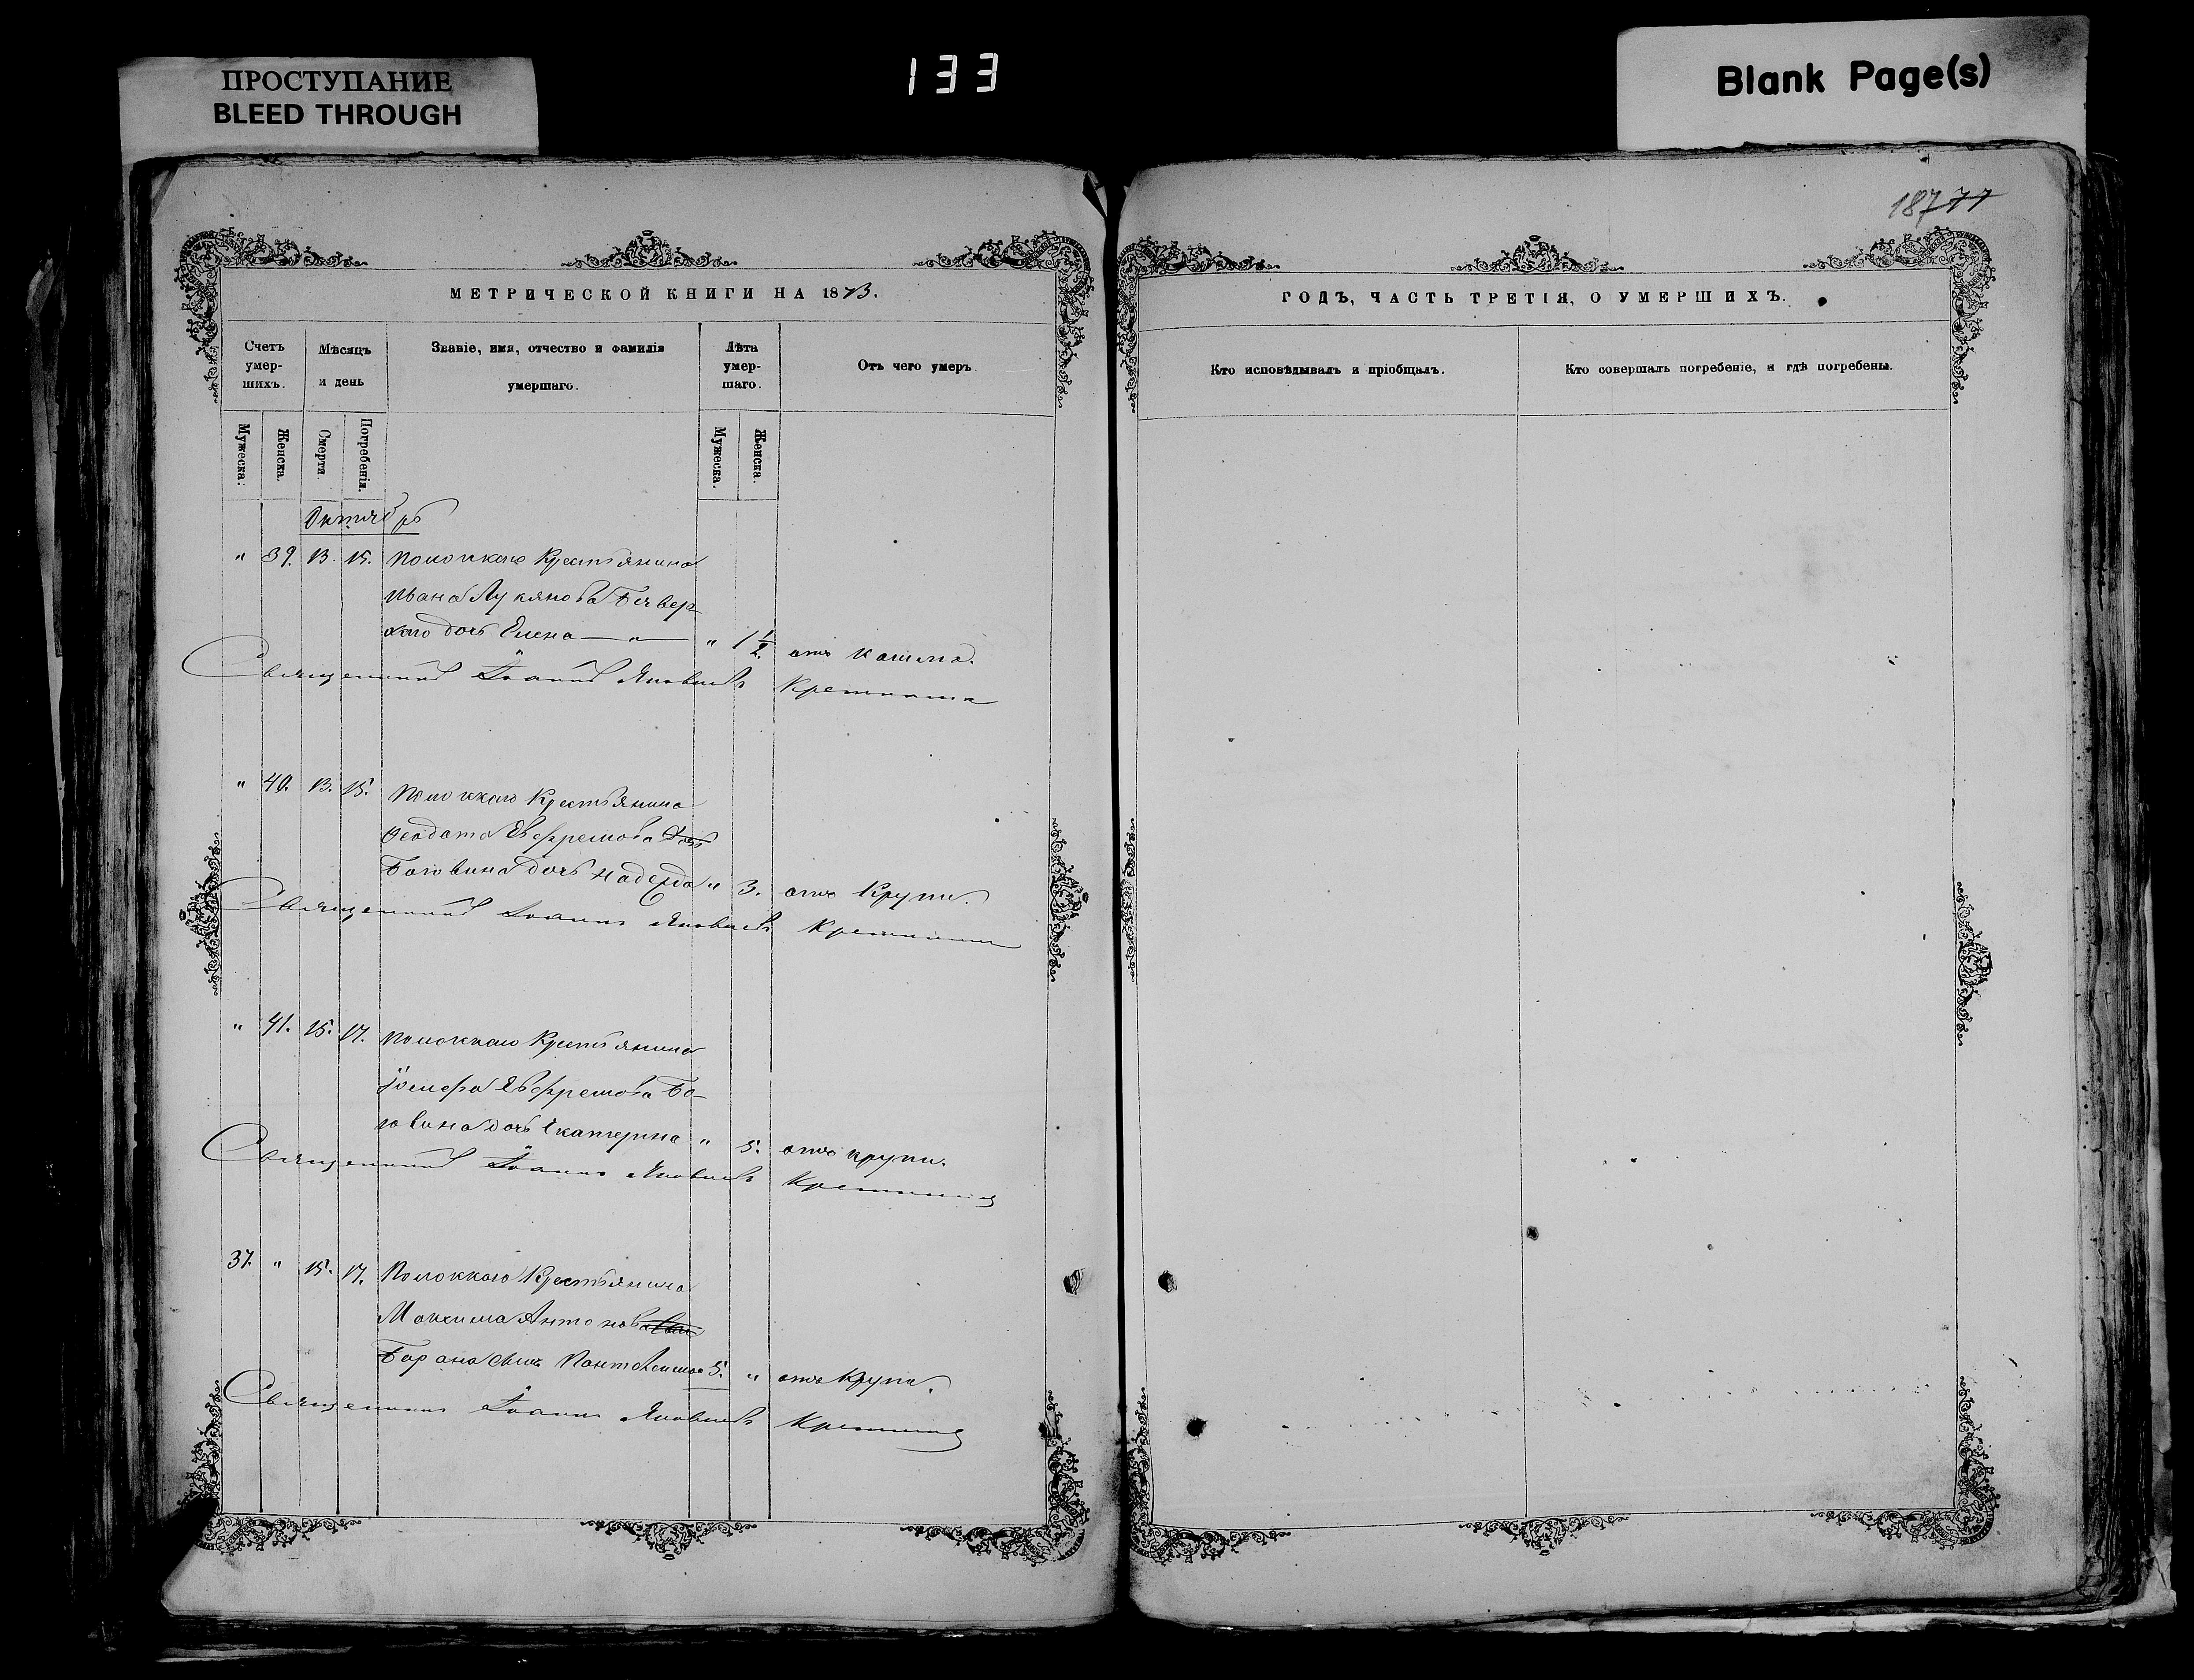 ПРОСТУПАНИЕ
BLEED THROUGH
133
Blank Page(s)
187 77
МЕТРИЧЕСКОЙ КНИГИ НА 1873.
Счетъ умер-шихъ.
Мѣсяцъ и день
Званіе, имя, отчество и фамилія умершаго.
Лѣта умер-шаго.
Отъ чего умеръ
Мужеска.
Женска.
Смерти.
Погребенія.
Мужеска.
Женска.
Октябрь
" 39. 13. 15. Крестьянина
Ивана Лукянова
дочь Елена — " — " 1 1/2. отъ кашля.
Священникъ Іоаннъ Яковлевъ
" 40. 13. 15. Крестьянина
Феодота Евфремова дочь
Боговина дочь Надежда " 3. отъ Крупи.
Священникъ Іоаннъ Яковлевъ
" 41. 15. 17. Крестьянина
Іосифа Евфремова Бо-
говина дочь Екатерина " 5. отъ крупи.
Священникъ Іоаннъ Яковлевъ
37. " 15. 17. Крестьянина
Максима Антонова
Барана сынъ Пантелеимонъ 5. " отъ Крупи.
Священникъ Іоаннъ Яковлевъ
ГОДЪ, ЧАСТЬ ТРЕТІЯ, О УМЕРШИХЪ.
Кто исповѣдывалъ и пріобщалъ.
Кто совершалъ погребеніе, и гдѣ погребены.